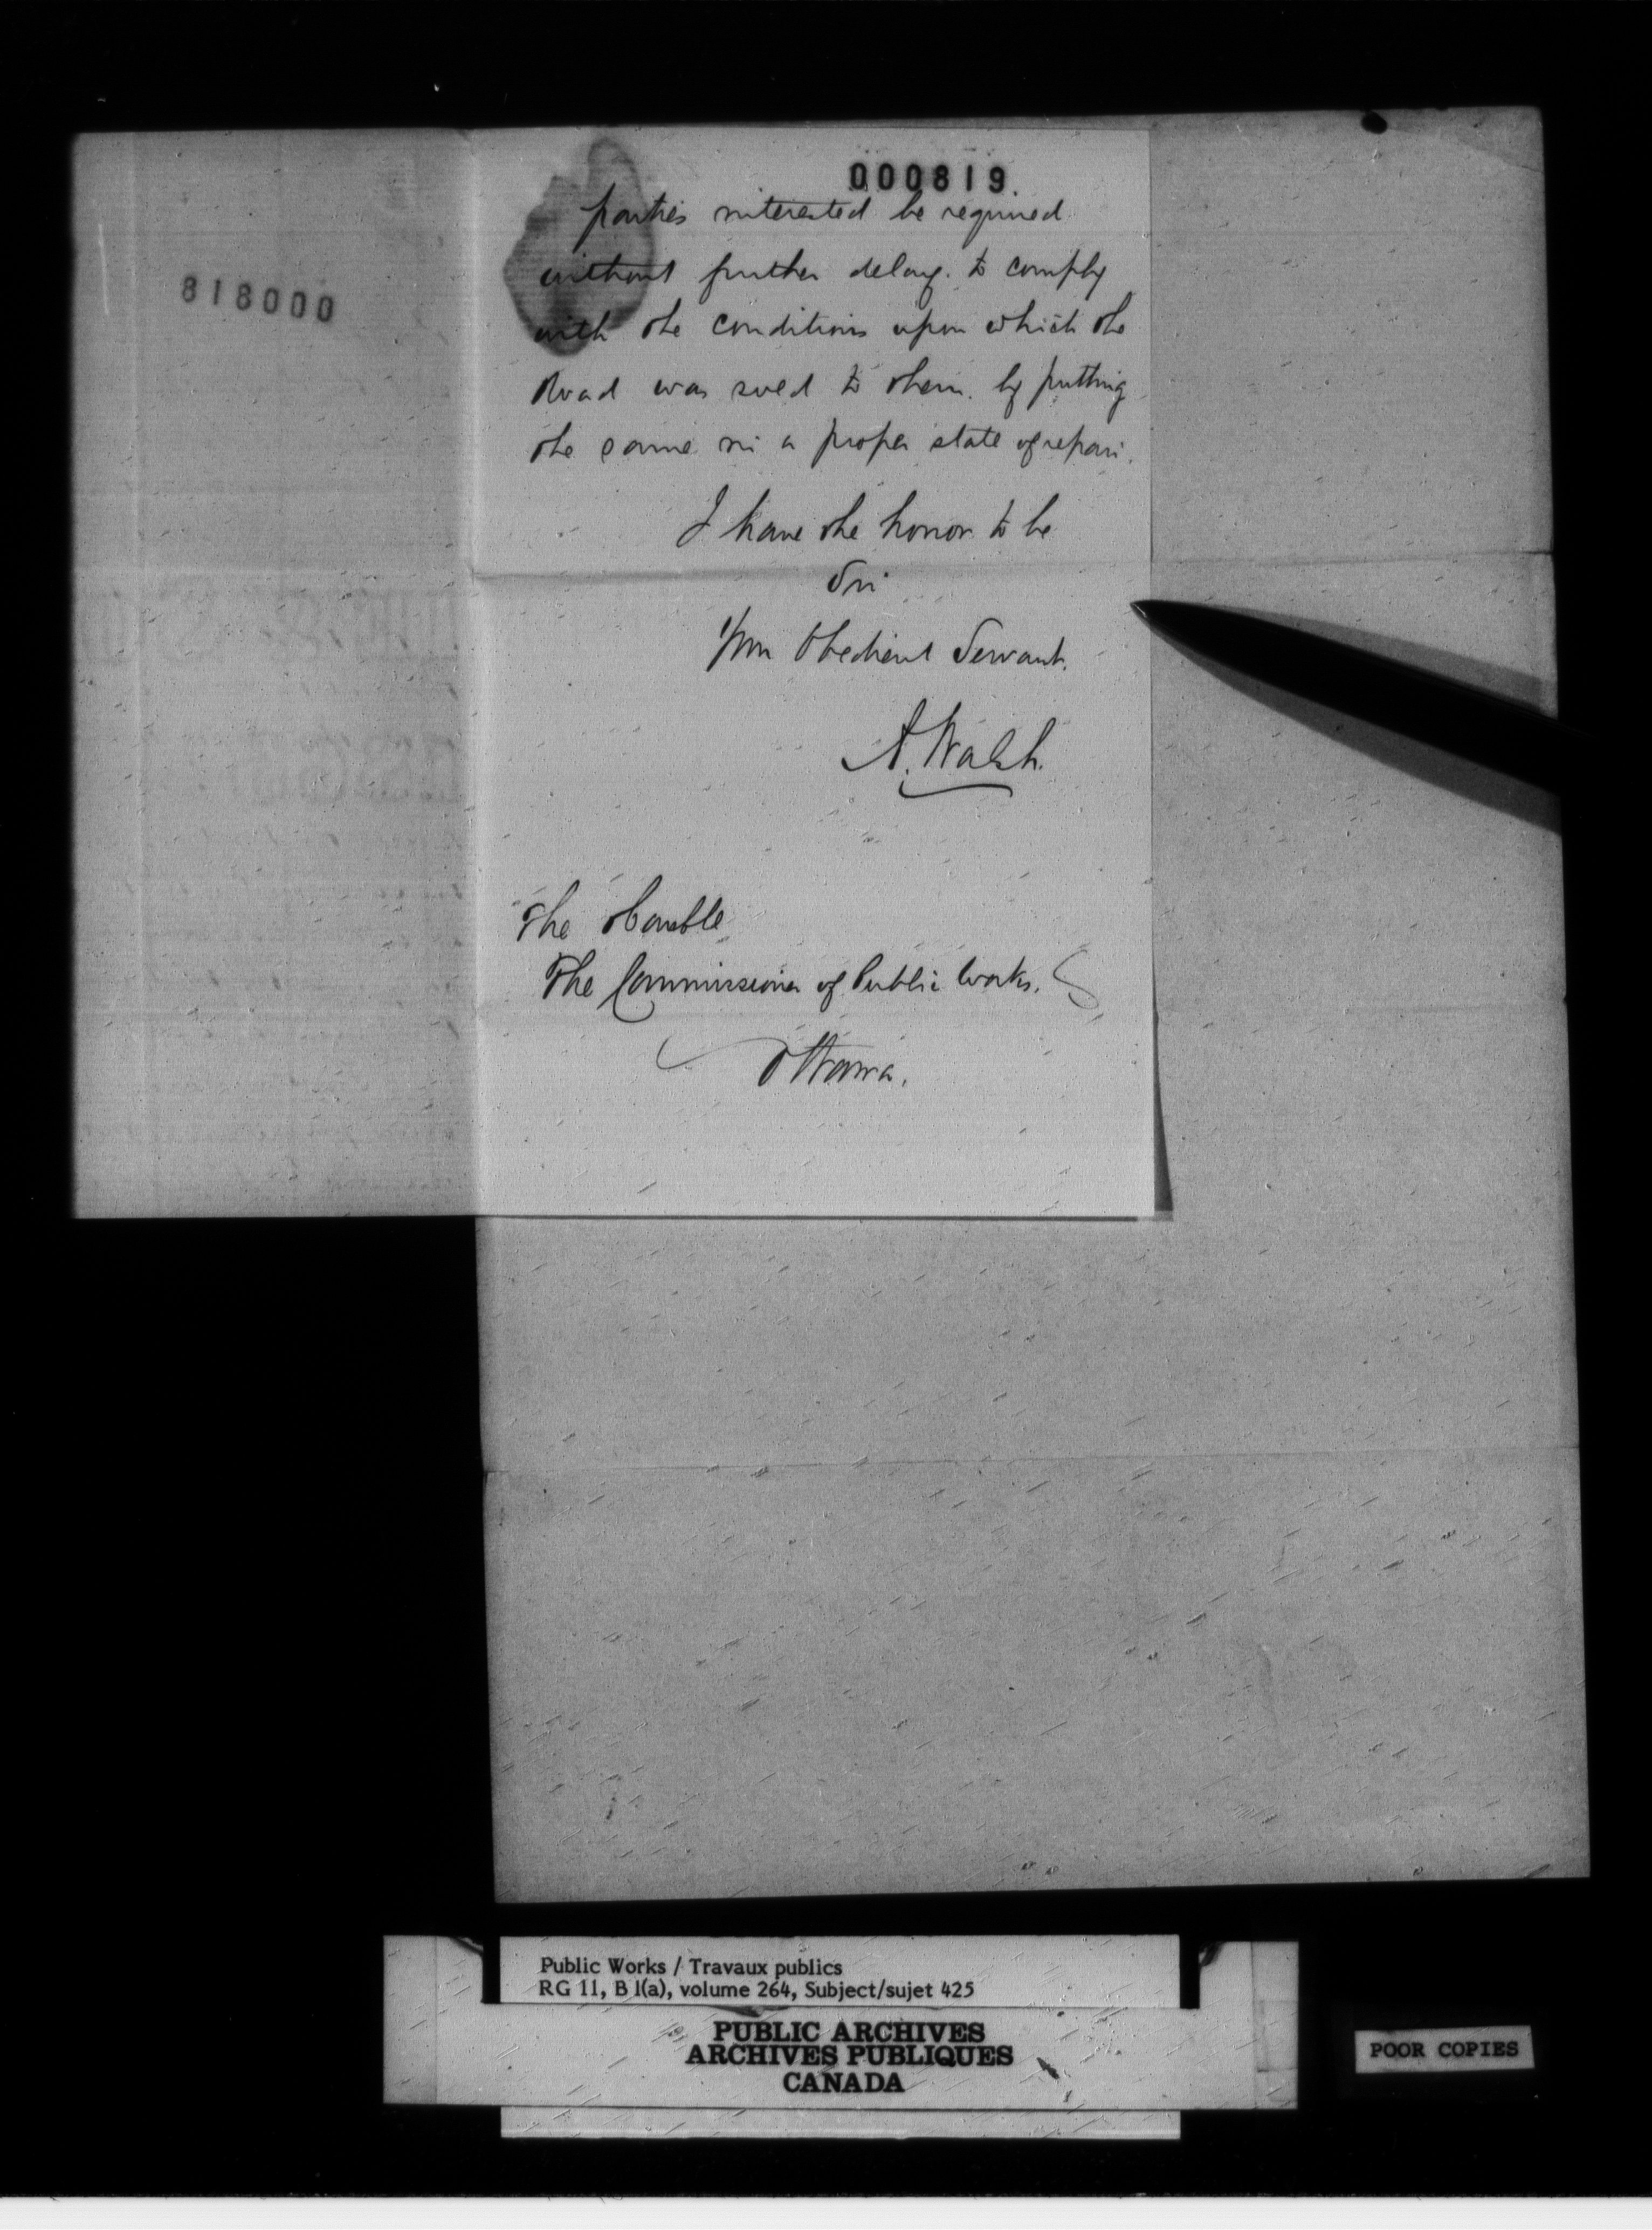 000819.
818000
parties interested be required
without further delay. to comply
with the conditions upon which the
Road was sold to them. by putting
the same in a proper state of repair.
I have the honor to be
Sir
Your Obedient Servant.
A. Walsh.
The Honble
The Commissioner of Public Works.
Ottawa.
Public Works / Travaux publics
RG 11, B 1(a), volume 264, Subject/sujet 425
PUBLIC ARCHIVES
ARCHIVES PUBLIQUES
CANADA
POOR COPIES